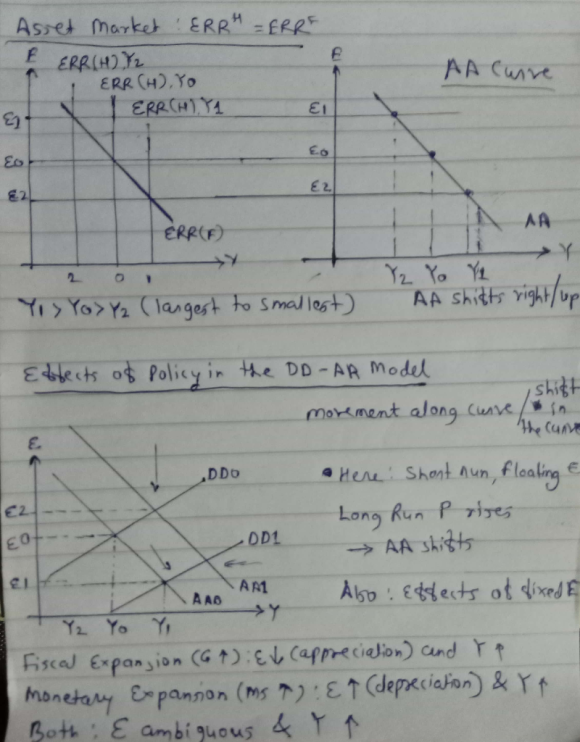 Asset Market : ERRᴴ = ERRᶠ
E
ERR(H), Y2
ERR(H), Y0
ERR(H), Y1
E1
E0
E2
ERR(F)
Y
2 0 1
E
AA Curve
E1
E0
E2
AA
Y
Y2 Y0 Y1
Y1 > Y0 > Y2 (largest to smallest)
AA shifts right/up
Effects of Policy in the DD-AA Model
movement along curve / shift
in
the curve
E
DD0
E2
E0
DD1
E1
AA0
AA1
Y
Y2 Y0 Y1
Here : Short run, floating E
Long Run P rises
→ AA shifts
Also : Effects of fixed E
Fiscal Expansion (G ↑) : E↓ (appreciation) and Y ↑
Monetary Expansion (MS ↑) : E ↑ (depreciation) & Y ↑
Both : E ambiguous & Y ↑